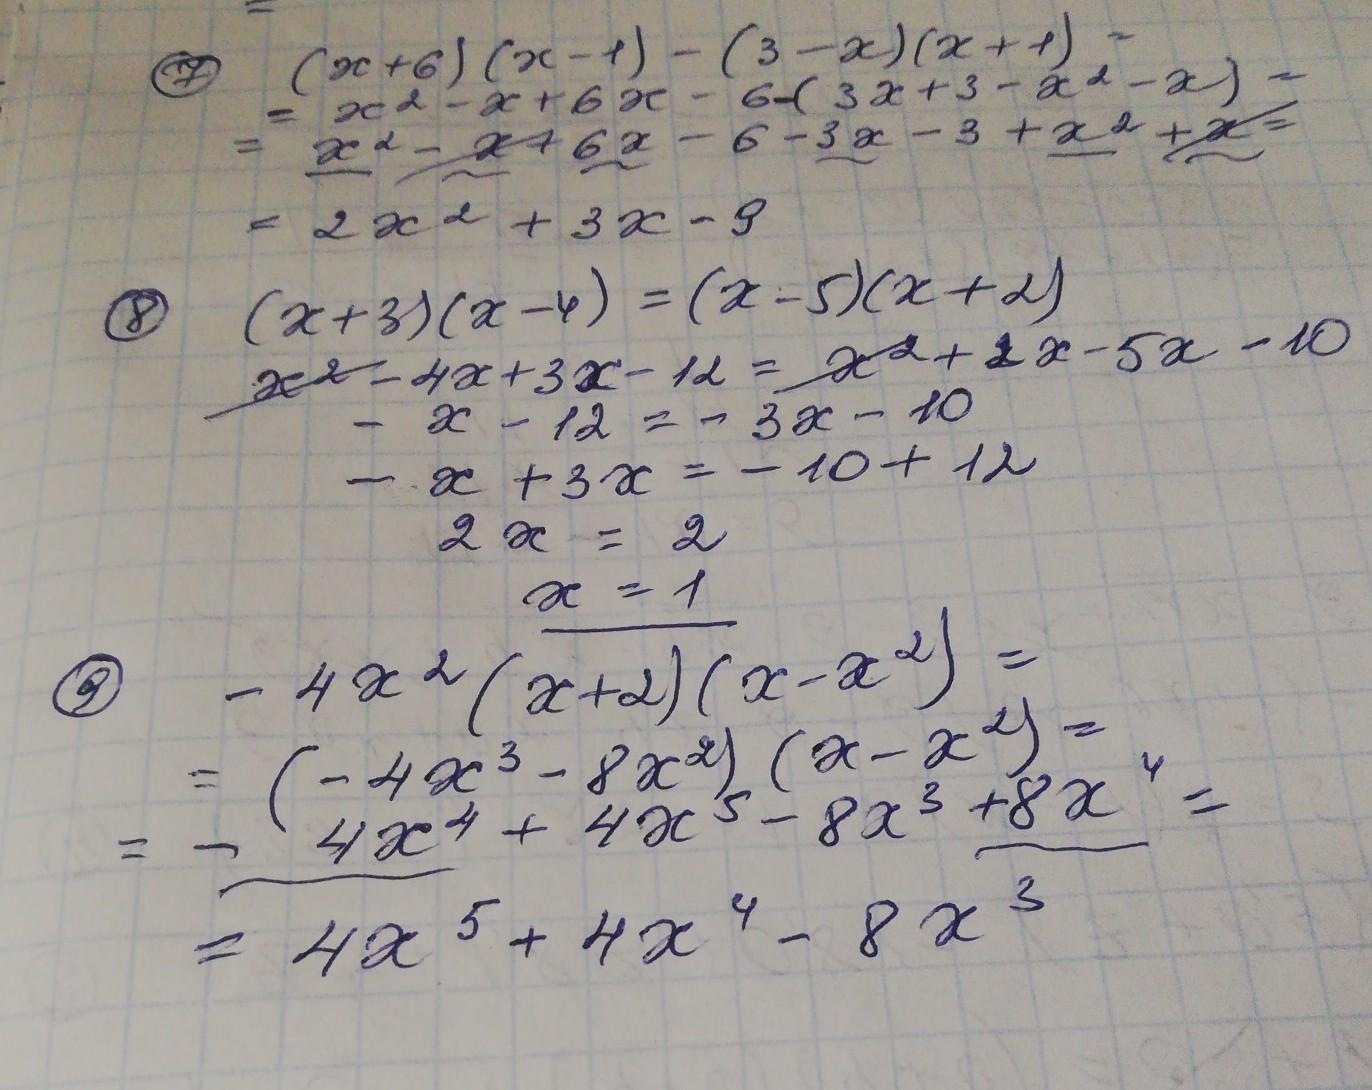 =
⑦ (x+6)(x-1) - (3-x)(x+1) =
= x² - x + 6x - 6 - (3x + 3 - x² - x) =
= x² - x + 6x - 6 - 3x - 3 + x² + x =
= 2x² + 3x - 9
⑧ (x+3)(x-4) = (x-5)(x+2)
x² - 4x + 3x - 12 = x² + 2x - 5x - 10
- x - 12 = - 3x - 10
- x + 3x = - 10 + 12
2x = 2
x = 1
⑨ - 4x² (x+2)(x-x²) =
= (-4x³ - 8x²)(x - x²) =
= - 4x⁴ + 4x⁵ - 8x³ + 8x⁴ =
= 4x⁵ + 4x⁴ - 8x³